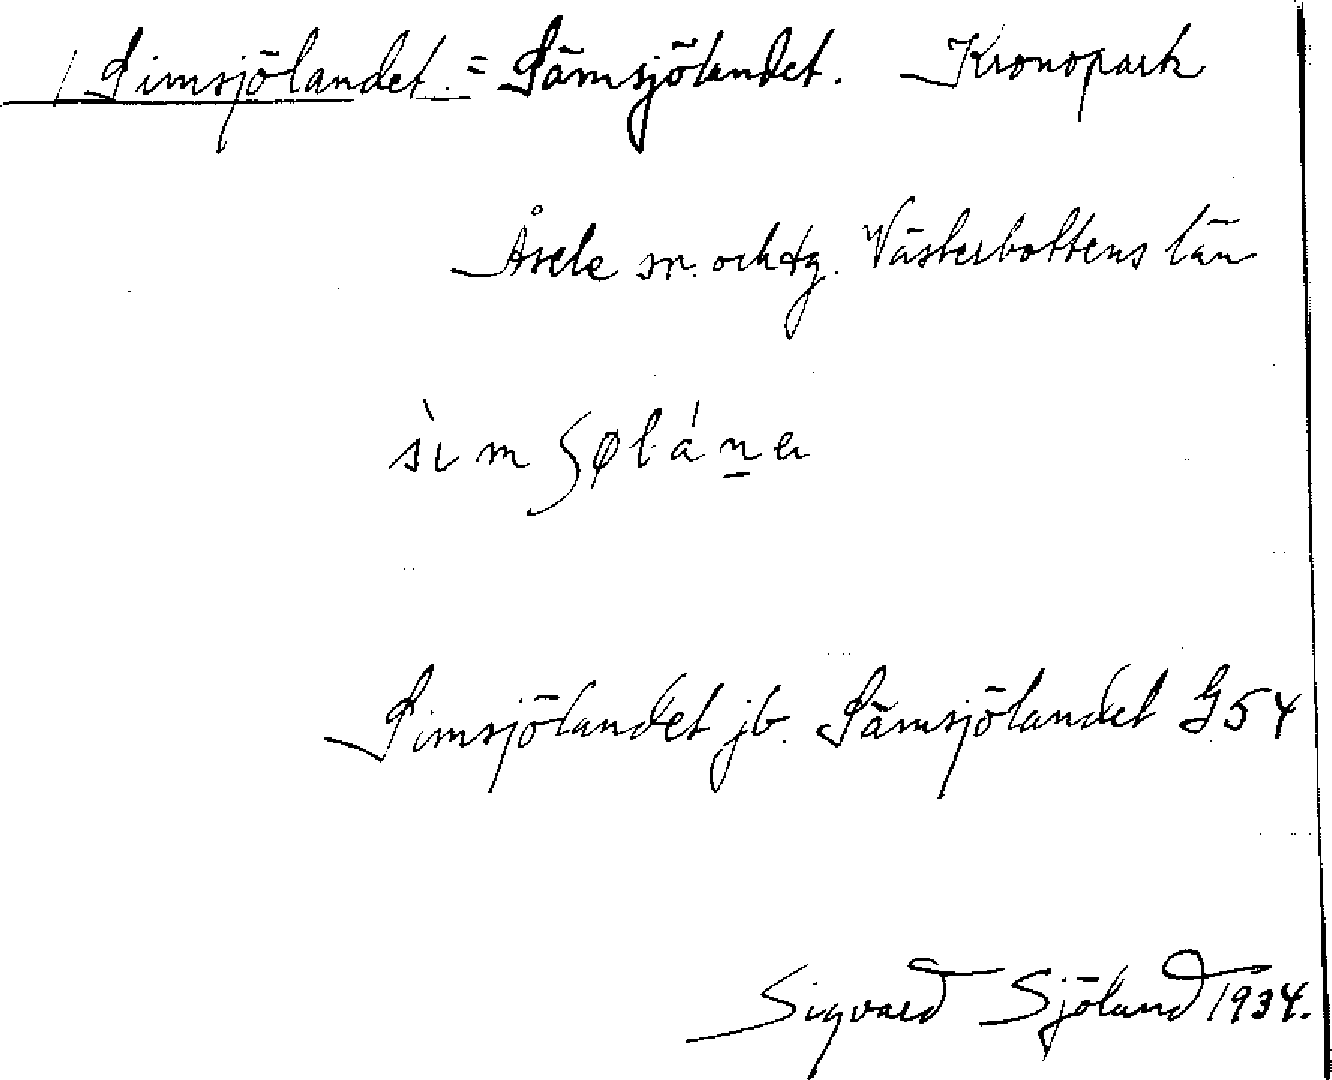 Simsjölandet. = Sämsjölandet. Kronopark
Åsele sn. och tg. Västerbottens län
Simsjölandet jb. Sämsjölandet G54
Sigvard Sjöland 1934.